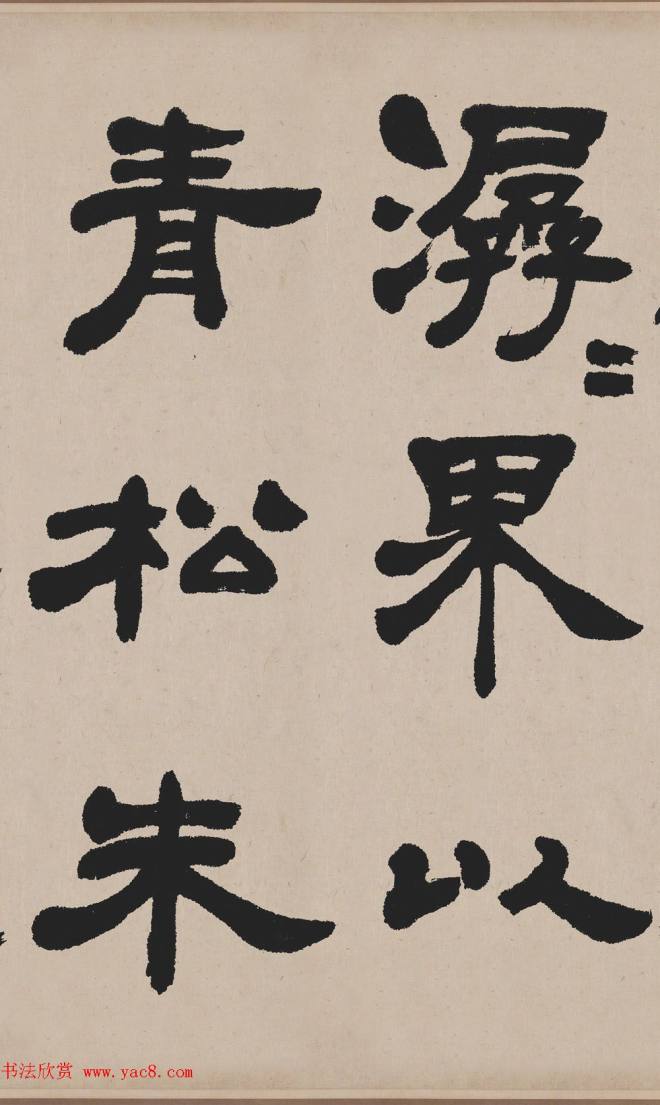 潺〻界以
青松朱
书法欣赏 www.yac8.com